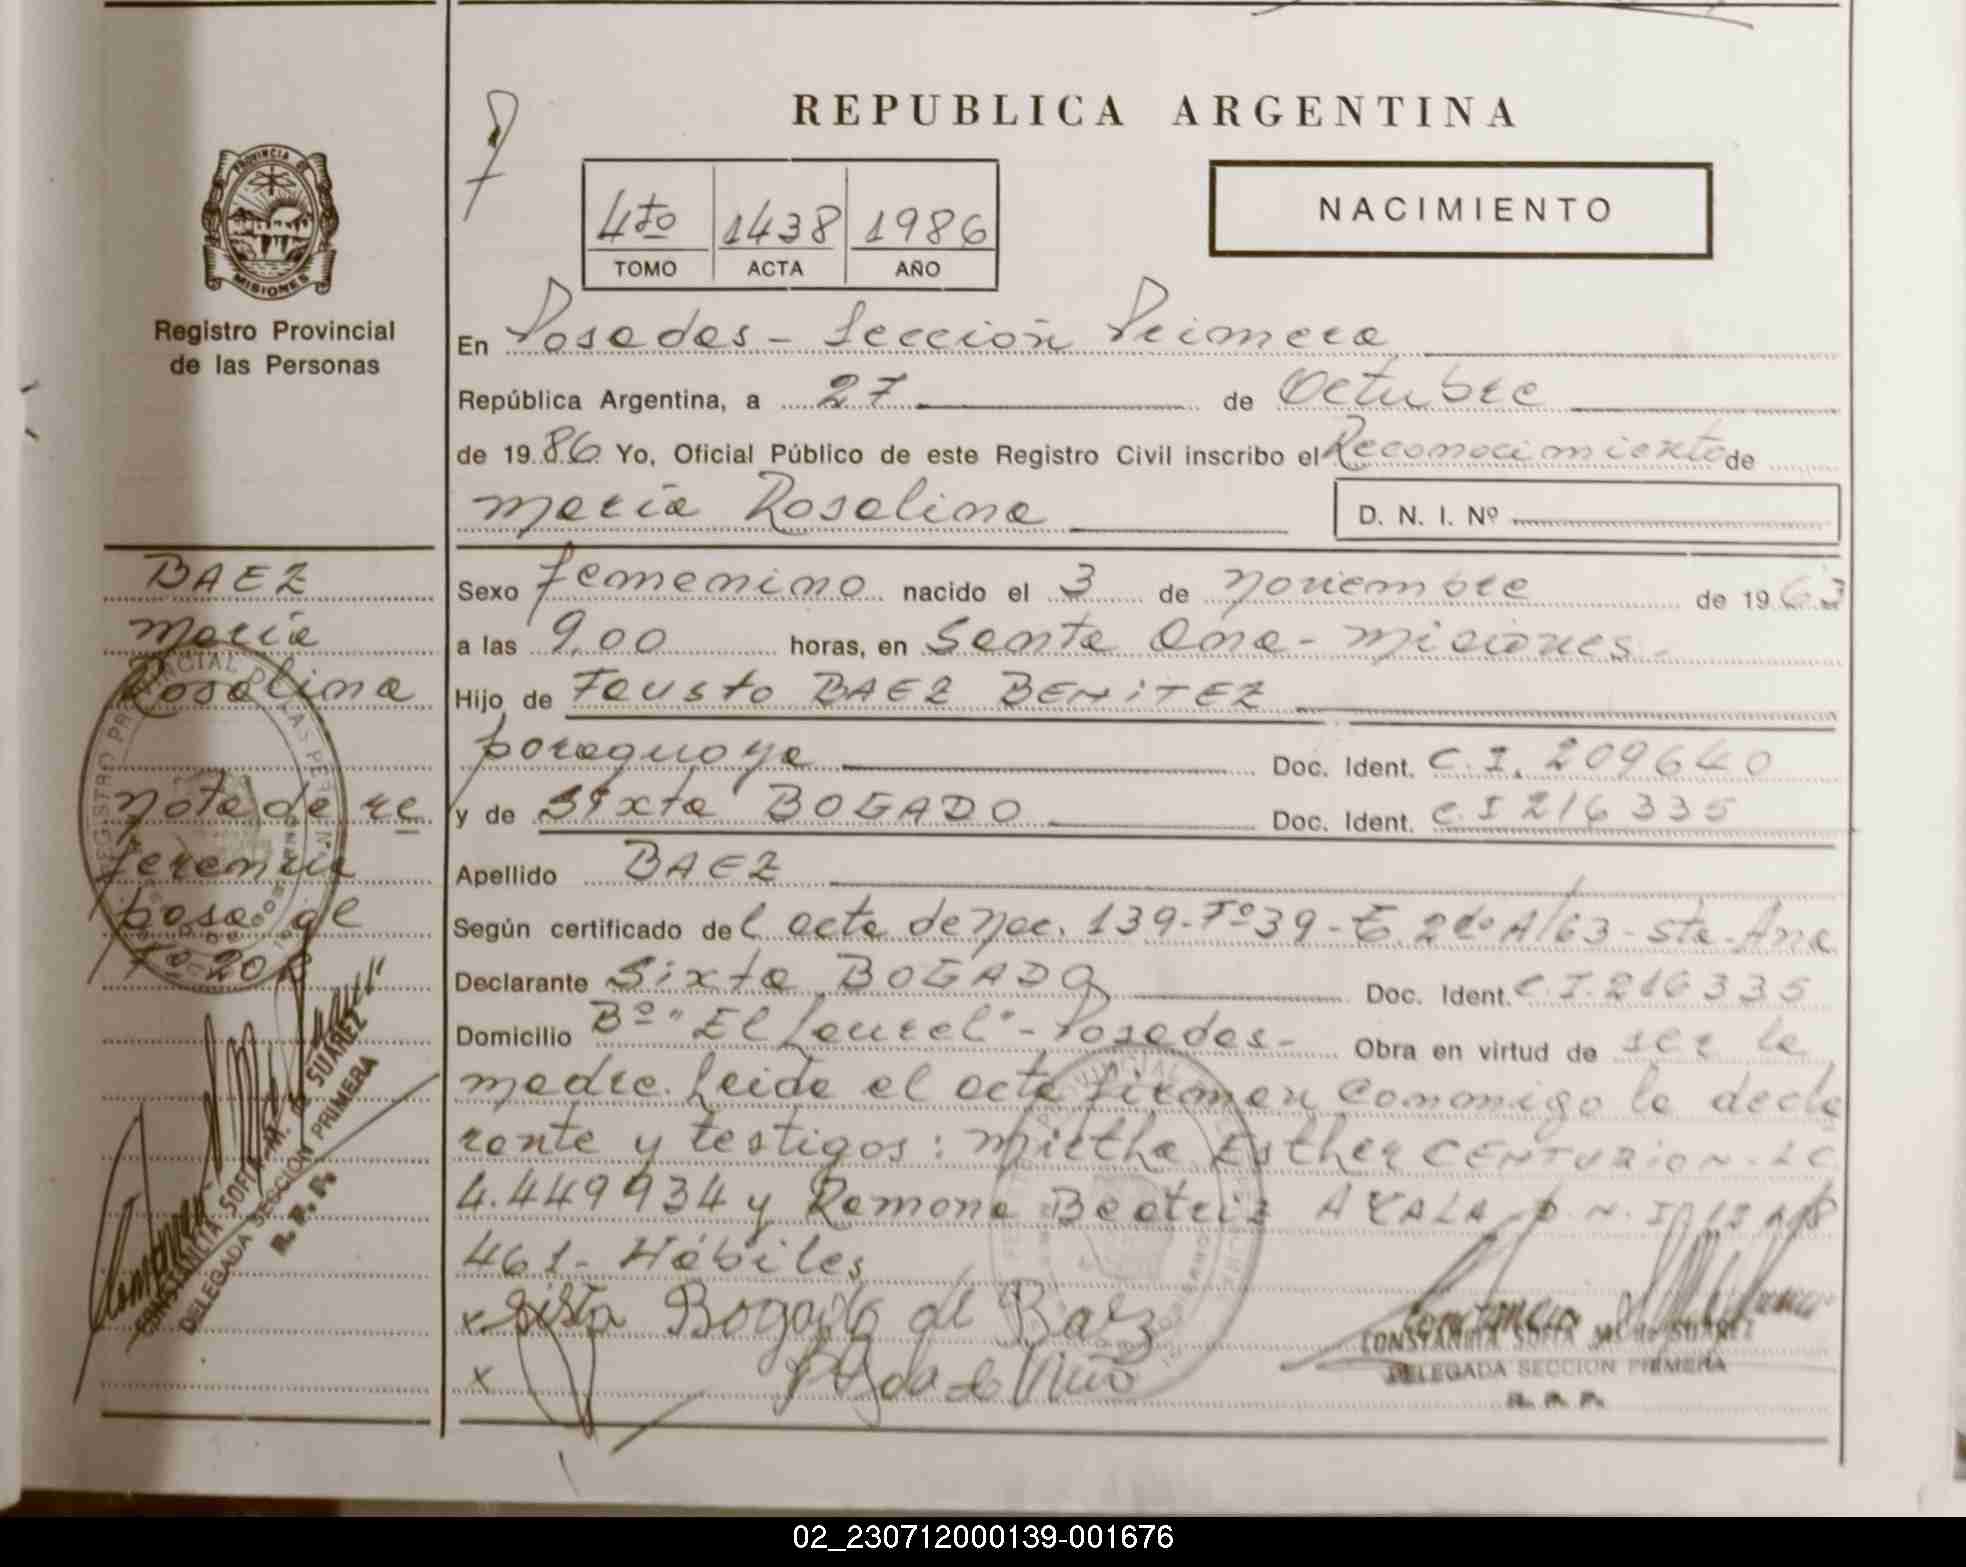 REPUBLICA ARGENTINA
PROVINCIA DE
MISIONES
Registro Provincial
de las Personas
4to 1438 1986
TOMO ACTA AÑO
NACIMIENTO
En Posadas - Sección Primera
República Argentina, a 27 de Octubre
de 1986 Yo, Oficial Público de este Registro Civil inscribo el Reconocimiento de
María Rosalina
D. N. I. Nº
BAEZ
María
Rosalina
nota de re
ferencia
pasa al
Fº 20
CONSTANCIA SOFIA M. de SUAREZ
DELEGADA SECCION PRIMERA
R. P. P.
Sexo femenino nacido el 3 de noviembre de 1963
a las 9,00 horas, en Santa Ana - Misiones -
Hijo de Fausto BAEZ BENITEZ
paraguaya Doc. Ident. C.I. 209640
y de Sixta BOGADO Doc. Ident. C.I 216335
Apellido BAEZ
Según certificado del acta de Nac. 139 - Fº 39 - T. 2do A/63 - Sta. Ana
Declarante Sixta BOGADO Doc. Ident. C.I. 216335
Domicilio Bº "El Laurel" - Posadas - Obra en virtud de ser la
madre. Leída el acta firman conmigo la decla
rante y testigos: Mirtha Esther CENTURION - LC
4.449934 y Ramona Beatriz AYALA D.N.I
461 - Hábiles
x Sixta Bogado de Baez
x
CONSTANCIA SOFIA M. de SUAREZ
DELEGADA SECCION PRIMERA
R. P. P.
02_230712000139-001676